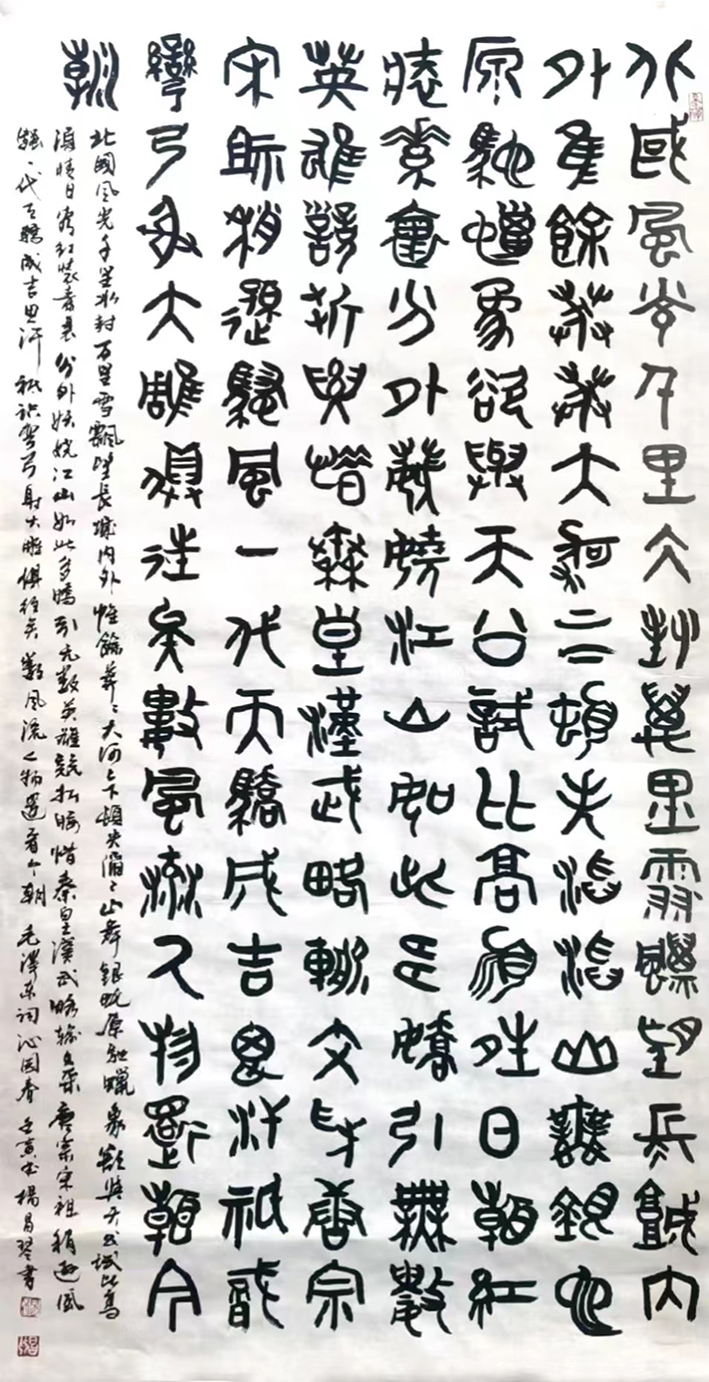 北國風光千里冰封萬里雪飄望長城內
外隹餘莽莽大河上下頓失滔滔山舞銀蛇
原馳蠟象欲與天公試比高須晴日看紅
裝素裹分外妖嬈江山如此多嬌引無數
英雄競折要惜秦皇漢武略輸文采唐宗
宋祖稍遜騷風一代天驕成吉思汗祇識
彎弓射大雕俱往矣數風流人物還看今
朝
北國風光千里冰封万里雪飄望長城內外惟餘莽〻大河上下頓失滔〻山舞銀蛇原馳蠟象欲與天公試比高
須晴日看紅裝素裹分外妖嬈江山如此多嬌引无數英雄競折腰惜秦皇漢武略輸文采唐宗宋祖稍遜風
騷一代天驕成吉思汗祇識彎弓射大雕俱往矣數風流人物還看今朝 毛澤東詞沁園春 壬寅 楊昌琴書